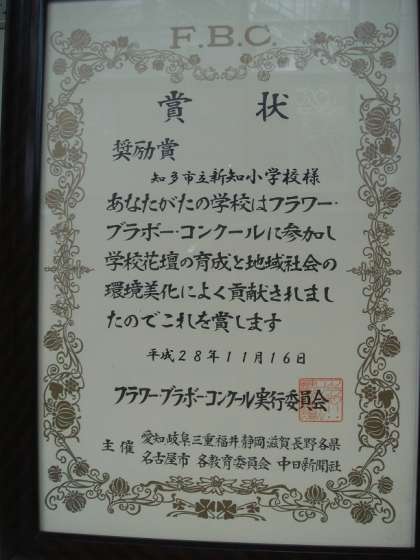 F.B.C.
賞状
奨励賞
知多市立新知小学校様
あなたがたの学校はフラワー・
ブラボー・コンクールに参加し
学校花壇の育成と地域社会の
環境美化によく貢献されまし
たのでこれを賞します
平成28年11月16日
フラワー・ブラボー・コンクール実行委員会
主催 愛知岐阜三重福井静岡滋賀長野各県
名古屋市 各教育委員会 中日新聞社